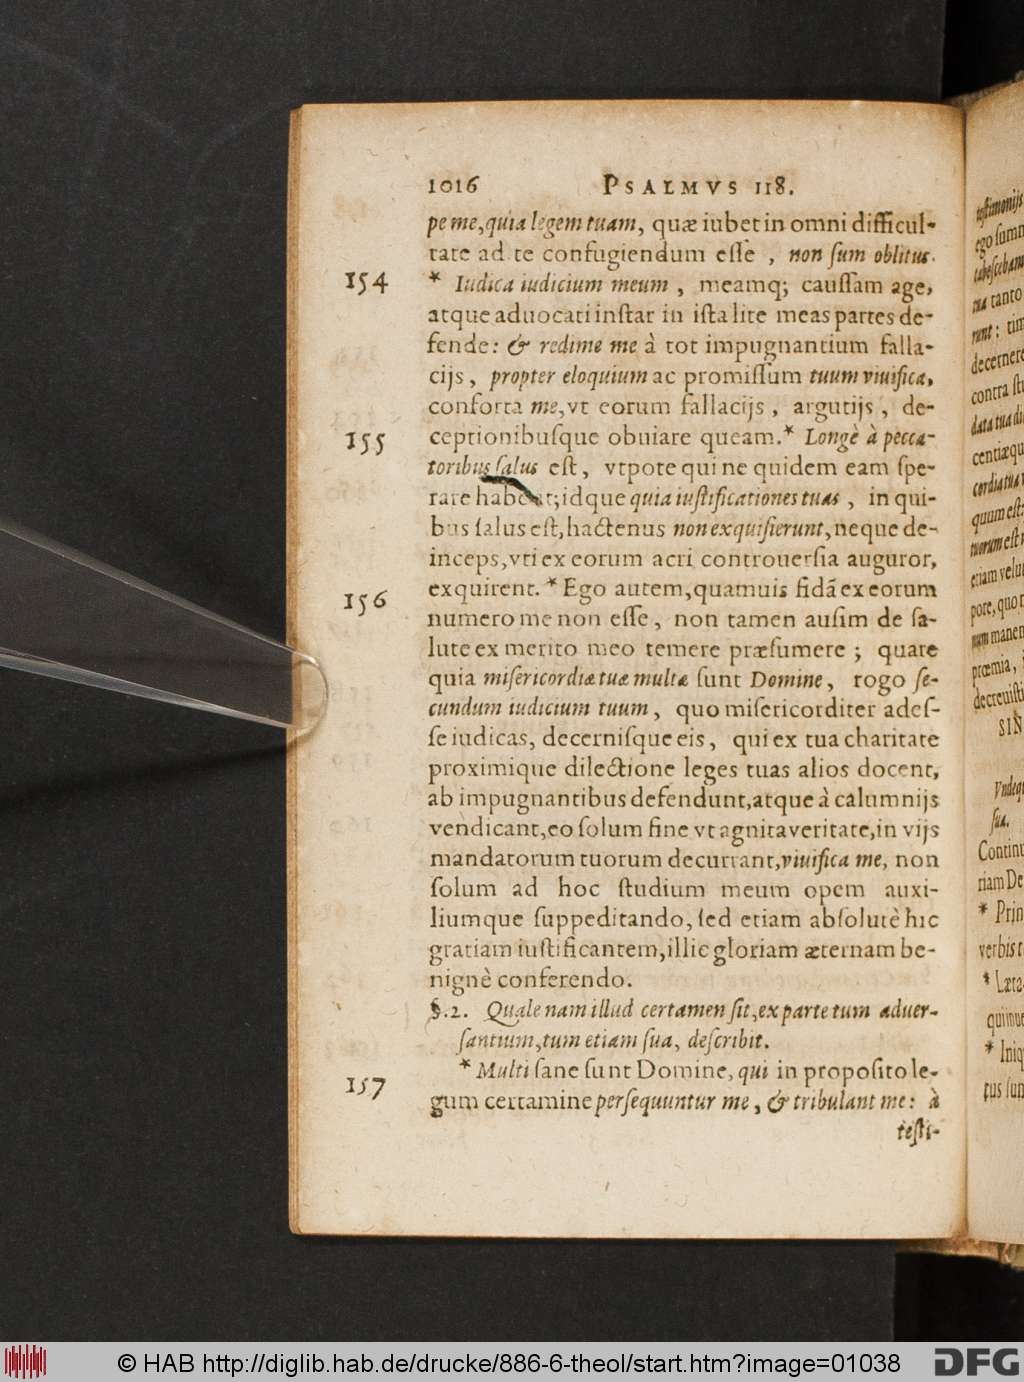 1016 PSALMVS 118.
pe me, quia legem tuam, quæ iubet in omni difficul-
tate ad te confugiendum esse, non sum oblitus.
154 * Iudica iudicium meum, meamq; caussam age,
atque aduocati instar in ista lite meas partes de-
fende: & redime me à tot impugnantium falla-
cijs, propter eloquium ac promissum tuum viuifica,
conforta me, vt eorum fallacijs, argutijs, de-
155 ceptionibusque obuiare queam. * Longè à pecca-
toribus salus est, vtpote qui ne quidem eam spe-
rare habent; idque quia iustificationes tuas, in qui-
bus salus est, hactenus non exquisierunt, neque de-
inceps, vti ex eorum acri controuersia auguror,
156 exquirent. * Ego autem, quamuis fidã ex eorum
numero me non esse, non tamen ausim de sa-
lute ex merito meo temere præsumere; quare
quia misericordiæ tuæ multæ sunt Domine, rogo se-
cundum iudicium tuum, quo misericorditer ades-
se iudicas, decernisque eis, qui ex tua charitate
proximique dilectione leges tuas alios docent,
ab impugnantibus defendunt, atque à calumnijs
vendicant, eo solum fine vt agnita veritate, in vijs
mandatorum tuorum decurrant, viuifica me, non
solum ad hoc studium meum opem auxi-
liumque suppeditando, sed etiam absolutè hic
gratiam iustificantem, illic gloriam æternam be-
nignè conferendo.
§.2. Quale nam illud certamen sit, ex parte tum aduer-
santium, tum etiam sua, describit.
157 * Multi sane sunt Domine, qui in proposito le-
gum certamine persequuntur me, & tribulant me: à
testi-
testimonijs
ego
tabescebam
tua tanto
runt: tim
decernere
contra
data tua
cordia tua
quum est:
tuorum est
etiam
pore, quo
num manen
præmia,
SIN
Vndeq
sua.
Continu
riam De
* Prin
verbis
* Læta
qui
* Iniq
tus sum
© HAB http://diglib.hab.de/drucke/886-6-theol/start.htm?image=01038
DFG